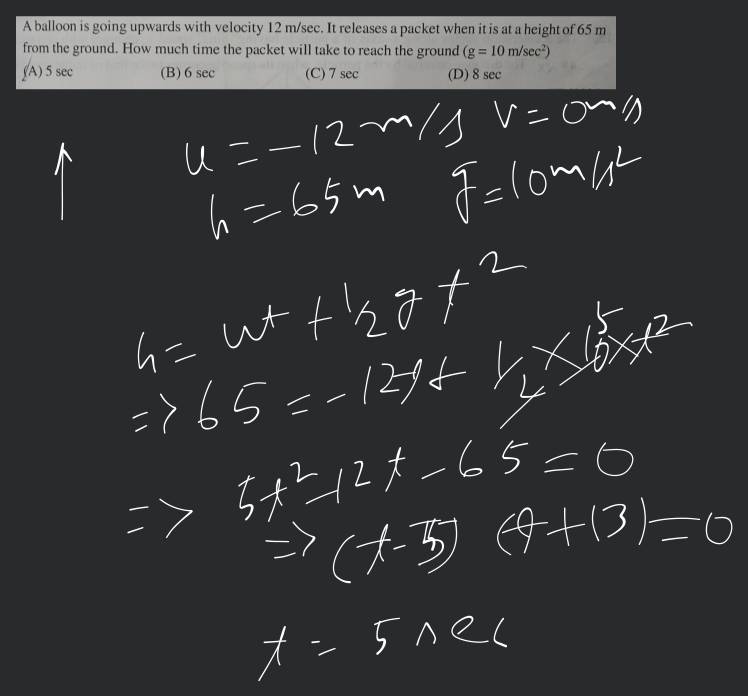 A balloon is going upwards with velocity 12 m/sec. It releases a packet when it is at a height of 65 m
from the ground. How much time the packet will take to reach the ground (g = 10 m/sec²)
(A) 5 sec (B) 6 sec (C) 7 sec (D) 8 sec
u = -12 m/s v = 0 m/s
h = 65 m g = 10 m/s²
h = ut + 1/2 g t²
=> 65 = -12t + 1/2 × 10 5 × t²
=> 5t² - 12t - 65 = 0
=> (t - 5) (t + 13) = 0
t = 5 sec